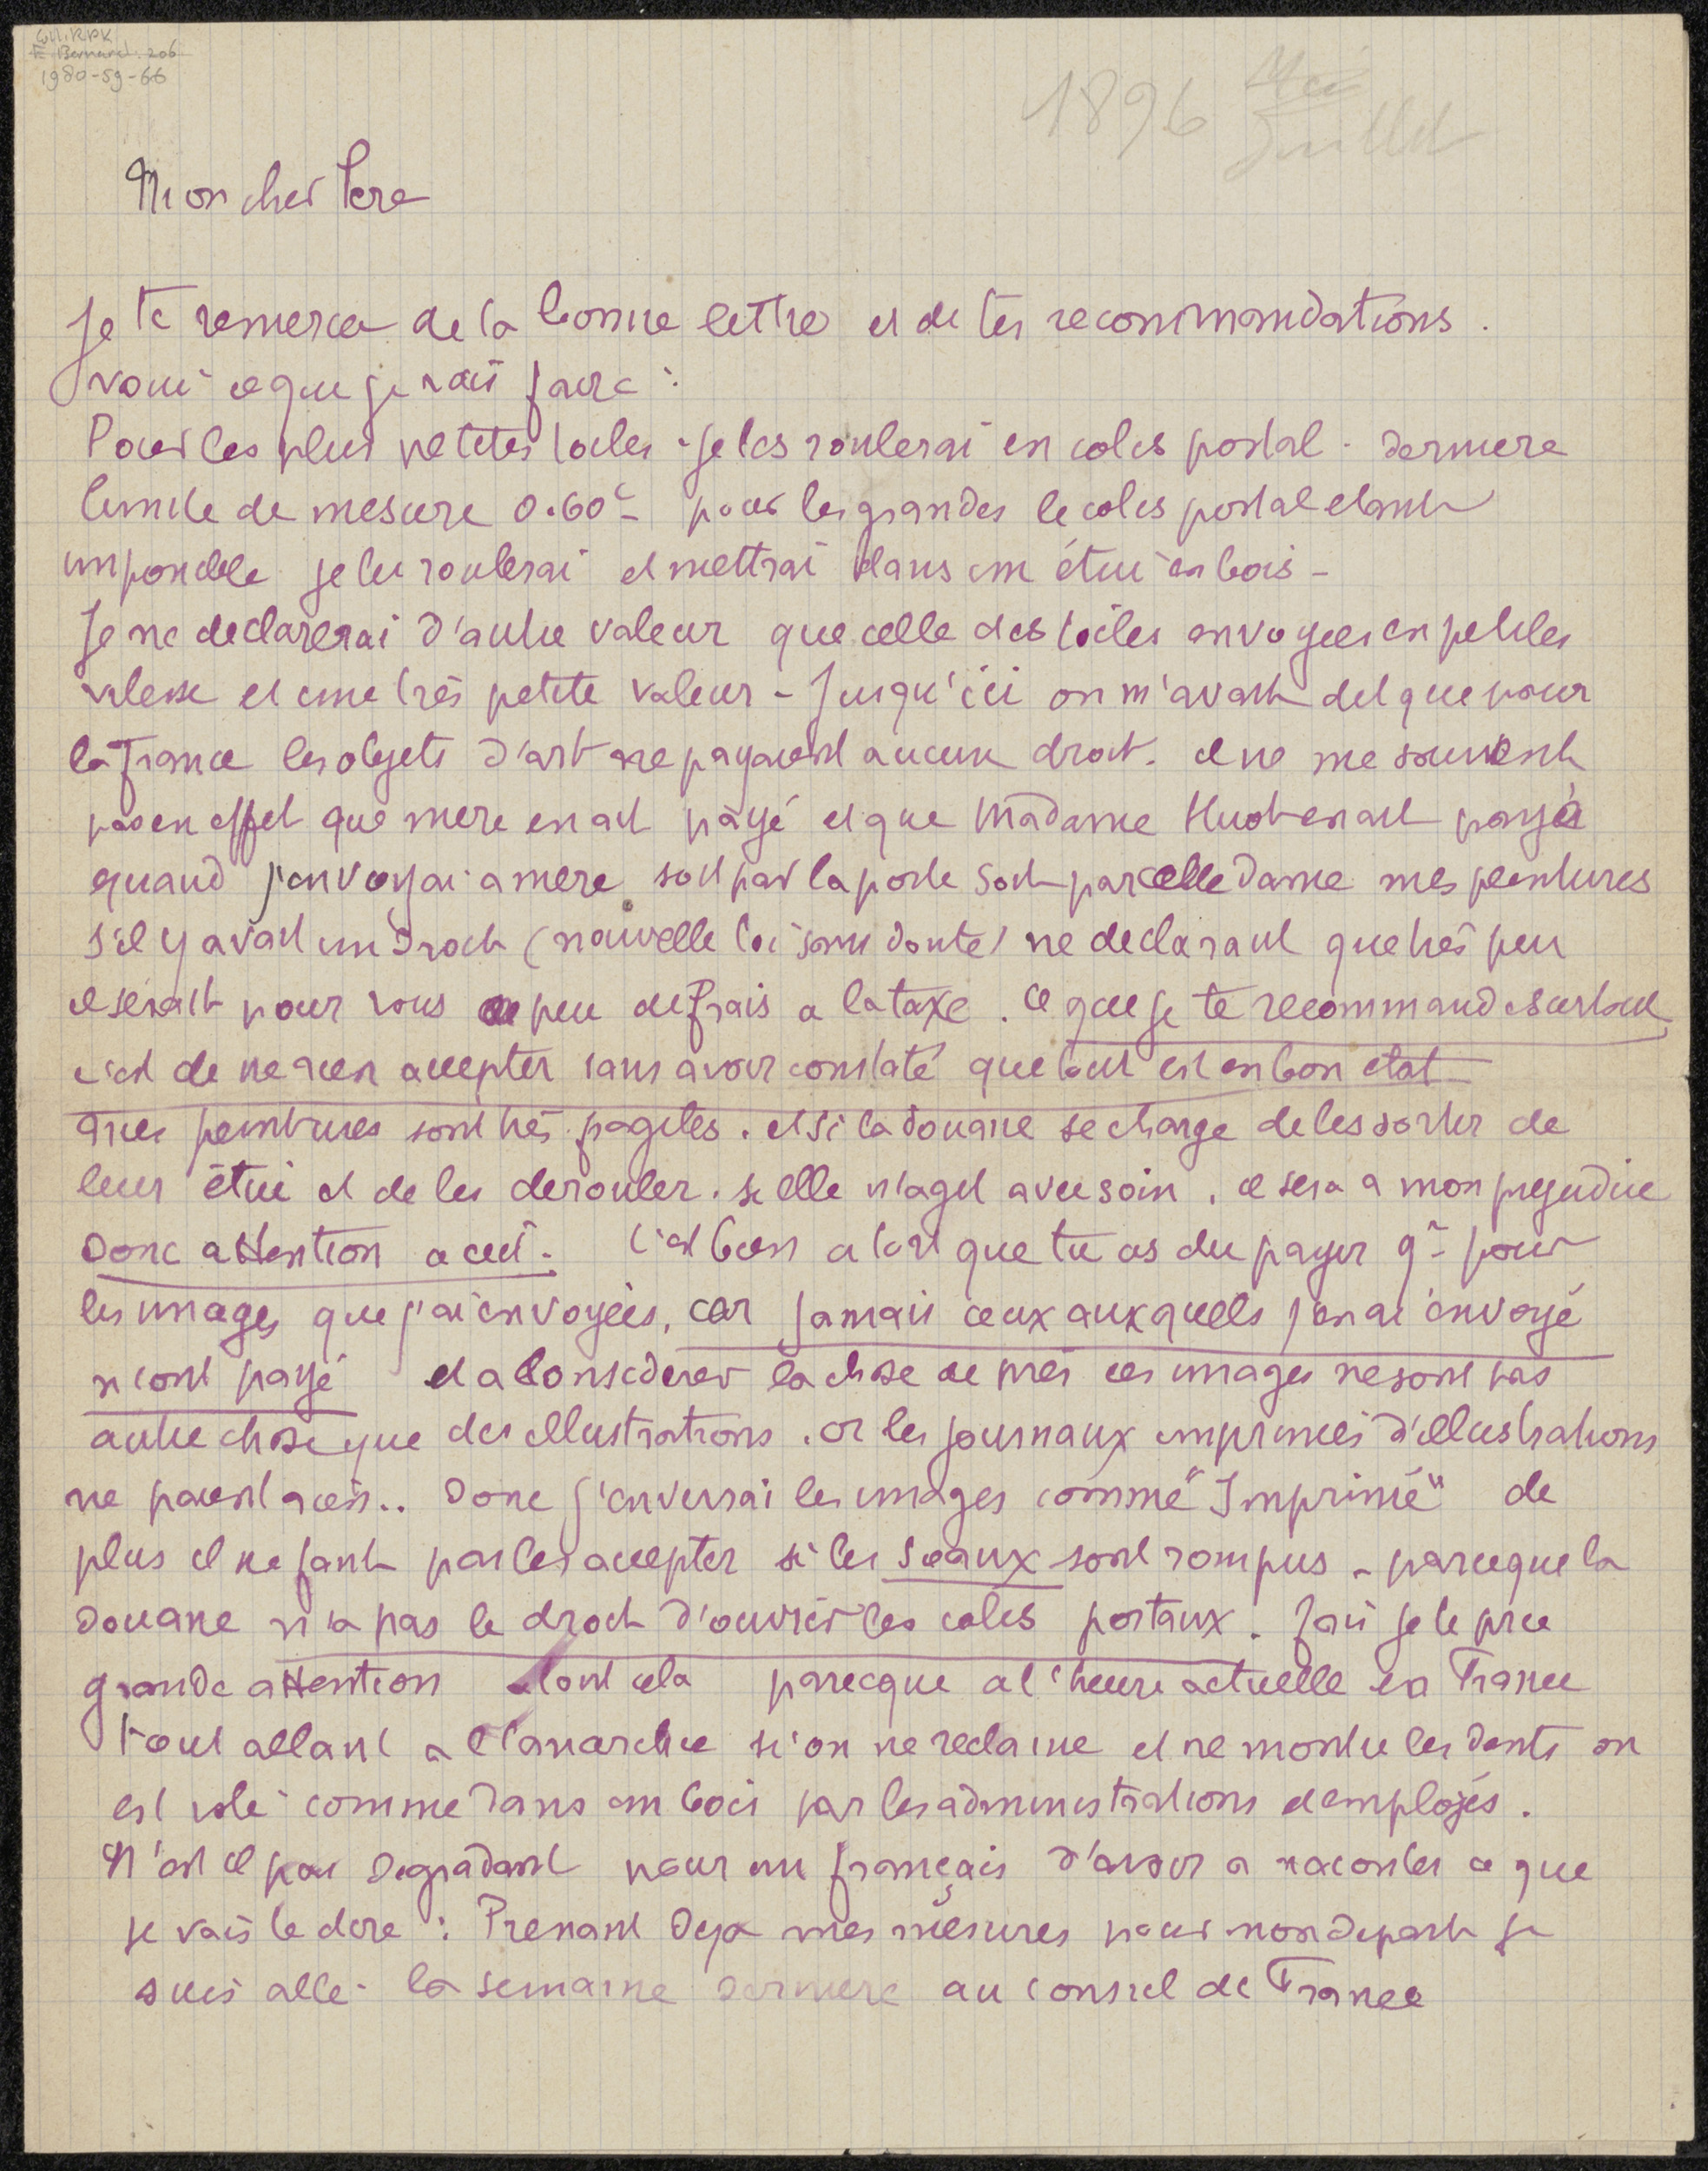 E. Bernard. 206
1980-59-66
1896 Mai
Juillet
Mon cher Pere
Je te remercie de ta bonne lettre et de tes recommandations.
voici ce que je vais faire :
Pour les plus petites toiles - je les roulerai en colis postal - derniere
limite de mesure 0.60c - pour les grandes le colis postal etant
impossible je les roulerai et mettrai dans un étui en bois -
Je ne declarerai d'autre valeur que celle des toiles envoyees en petites
vitesse et une très petite valeur - Jusqu'ici on m'avait dit que pour
la France les objets d'art ne payaient aucun droit. il ne me souvient
pas en effet que mere en ait payé et que Madame Huot en ait payé
quand j'envoyai a mere soit par la poste soit par cette dame mes peintures
s'il y avait un droit (nouvelle loi sans doute) ne declarant que très peu
il serait pour vous peu de frais a la taxe. ce que je te recommande surtout
c'est de ne rien accepter sans avoir constaté que tout est en bon etat
mes peintures sont très fragiles. et si la douane se charge de les sortir de
leur étui et de les derouler. si elle n'agit avec soin, ce sera a mon prejudice
Donc attention a ceci. C'est bien a tort que tu as du payer 9f pour
les images que j'ai envoyées, car jamais ceux auxquels j'en ai envoyé
n'ont payé et a considerer la chose de près ces images ne sont pas
autre chose que des illustrations. or les journaux imprimés d'illustrations
ne paient rien.. Donc j'enverrai les images comme "Imprimé" de
plus il ne faut pas les accepter si les sceaux sont rompus - parceque la
Douane n'a pas le droit d'ouvrir les colis postaux. fais je te prie
grande attention a tout cela parceque a l'heure actuelle en France
tout allant a l'anarchie si on ne reclame et ne montre les dents on
est volé comme dans un bois par les administrations et employés.
N'est il pas degradant pour un français d'avoir a raconter ce que
je vais te dire : Prenant deja mes mesures pour mon depart je
suis allé la semaine derniere au consul de France